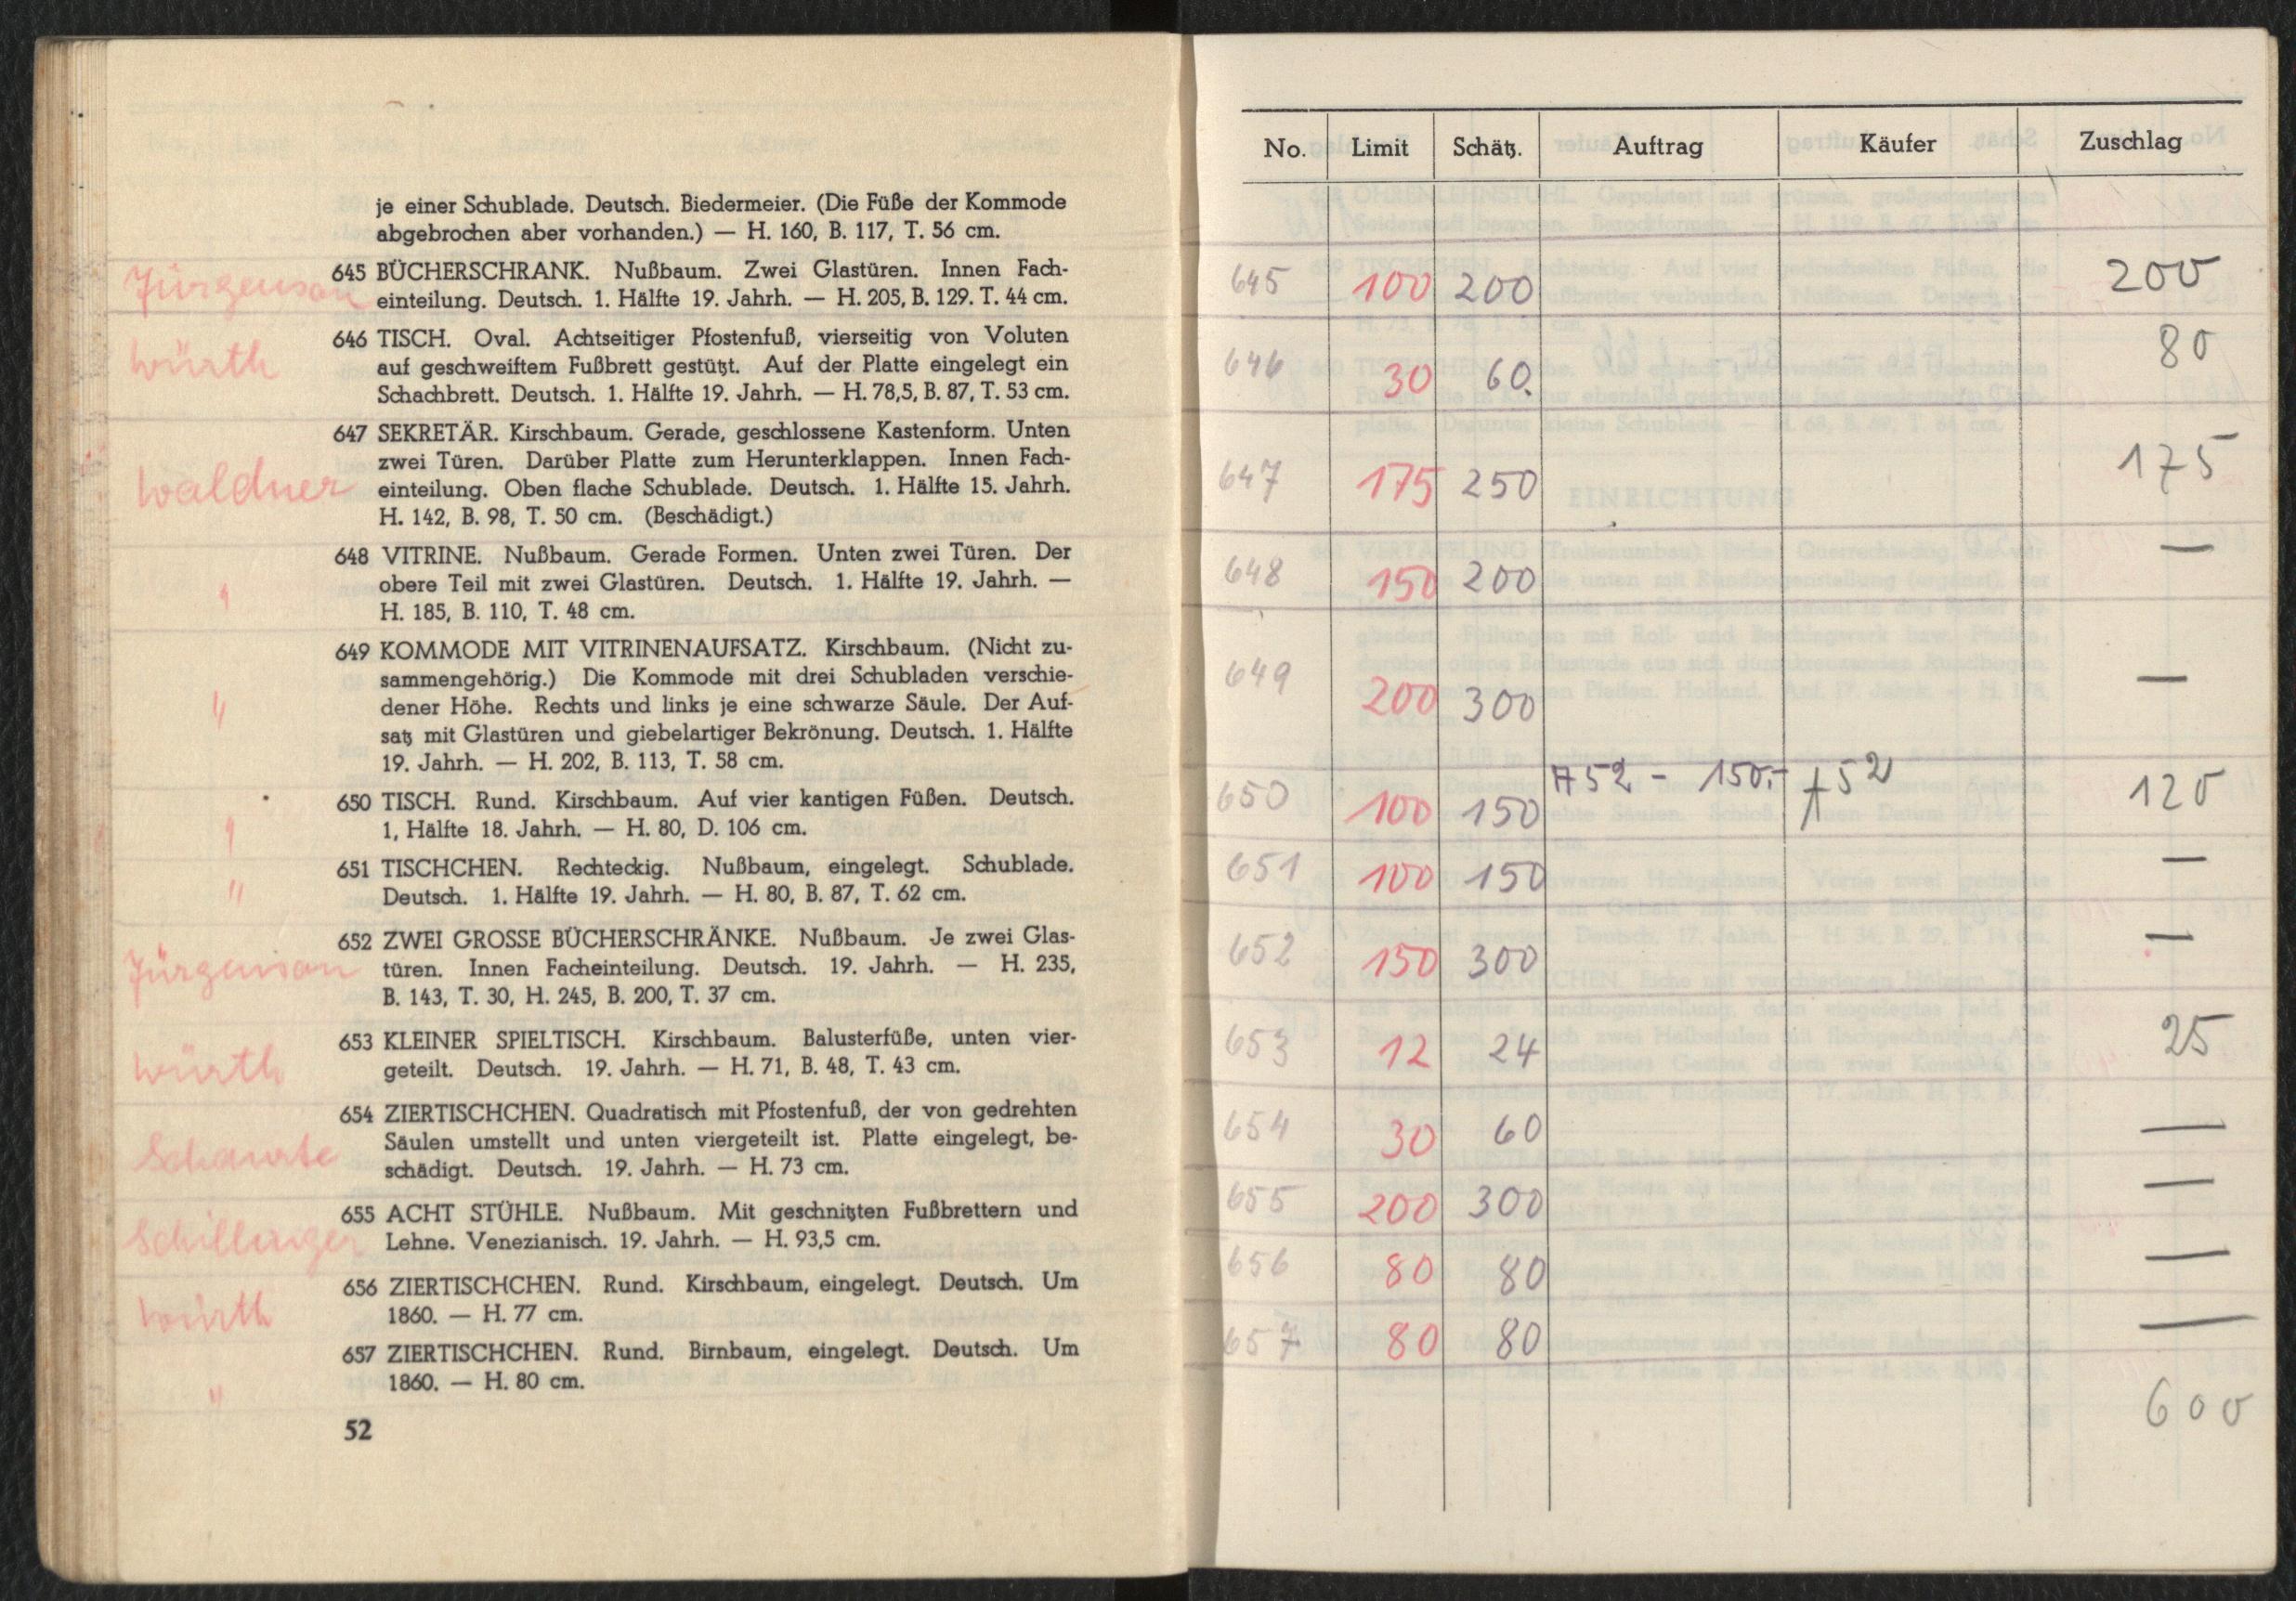 je einer Schublade. Deutsch. Biedermeier. (Die Füße der Kommode
abgebrochen aber vorhanden.) — H. 160, B. 117, T. 56 cm.
Jürgenson
645 BÜCHERSCHRANK. Nußbaum. Zwei Glastüren. Innen Fach-
einteilung. Deutsch. 1. Hälfte 19. Jahrh. — H. 205, B. 129. T. 44 cm.
Würth
646 TISCH. Oval. Achtseitiger Pfostenfuß, vierseitig von Voluten
auf geschweiftem Fußbrett gestützt. Auf der Platte eingelegt ein
Schachbrett. Deutsch. 1. Hälfte 19. Jahrh. — H. 78,5, B. 87, T. 53 cm.
Waldner
647 SEKRETÄR. Kirschbaum. Gerade, geschlossene Kastenform. Unten
zwei Türen. Darüber Platte zum Herunterklappen. Innen Fach-
einteilung. Oben flache Schublade. Deutsch. 1. Hälfte 15. Jahrh.
H. 142, B. 98, T. 50 cm. (Beschädigt.)
"
648 VITRINE. Nußbaum. Gerade Formen. Unten zwei Türen. Der
obere Teil mit zwei Glastüren. Deutsch. 1. Hälfte 19. Jahrh. —
H. 185, B. 110, T. 48 cm.
"
649 KOMMODE MIT VITRINENAUFSATZ. Kirschbaum. (Nicht zu-
sammengehörig.) Die Kommode mit drei Schubladen verschie-
dener Höhe. Rechts und links je eine schwarze Säule. Der Auf-
satz mit Glastüren und giebelartiger Bekrönung. Deutsch. 1. Hälfte
19. Jahrh. — H. 202, B. 113, T. 58 cm.
"
650 TISCH. Rund. Kirschbaum. Auf vier kantigen Füßen. Deutsch.
1, Hälfte 18. Jahrh. — H. 80, D. 106 cm.
"
651 TISCHCHEN. Rechteckig. Nußbaum, eingelegt. Schublade.
Deutsch. 1. Hälfte 19. Jahrh. — H. 80, B. 87, T. 62 cm.
Jürgenson
652 ZWEI GROSSE BÜCHERSCHRÄNKE. Nußbaum. Je zwei Glas-
türen. Innen Facheinteilung. Deutsch. 19. Jahrh. — H. 235,
B. 143, T. 30, H. 245, B. 200, T. 37 cm.
Würth
653 KLEINER SPIELTISCH. Kirschbaum. Balusterfüße, unten vier-
geteilt. Deutsch. 19. Jahrh. — H. 71, B. 48, T. 43 cm.
654 ZIERTISCHCHEN. Quadratisch mit Pfostenfuß, der von gedrehten
Säulen umstellt und unten viergeteilt ist. Platte eingelegt, be-
schädigt. Deutsch. 19. Jahrh. — H. 73 cm.
Schillinger
655 ACHT STÜHLE. Nußbaum. Mit geschnitzten Fußbrettern und
Lehne. Venezianisch. 19. Jahrh. — H. 93,5 cm.
Würth
656 ZIERTISCHCHEN. Rund. Kirschbaum, eingelegt. Deutsch. Um
1860. — H. 77 cm.
"
657 ZIERTISCHCHEN. Rund. Birnbaum, eingelegt. Deutsch. Um
1860. — H. 80 cm.
52
No. Limit Schätz. Auftrag Käufer Zuschlag
645 100 200 200
646 30 60. 80
647 175 250 175
648 150 200 —
649 200 300 —
650 100 150 A 52 - 150.- A 52 120
651 100 150 —
652 150 300 —
653 12 24 25
654 30 60 —
655 200 300 —
656 80 80 —
657 80 80 —
600